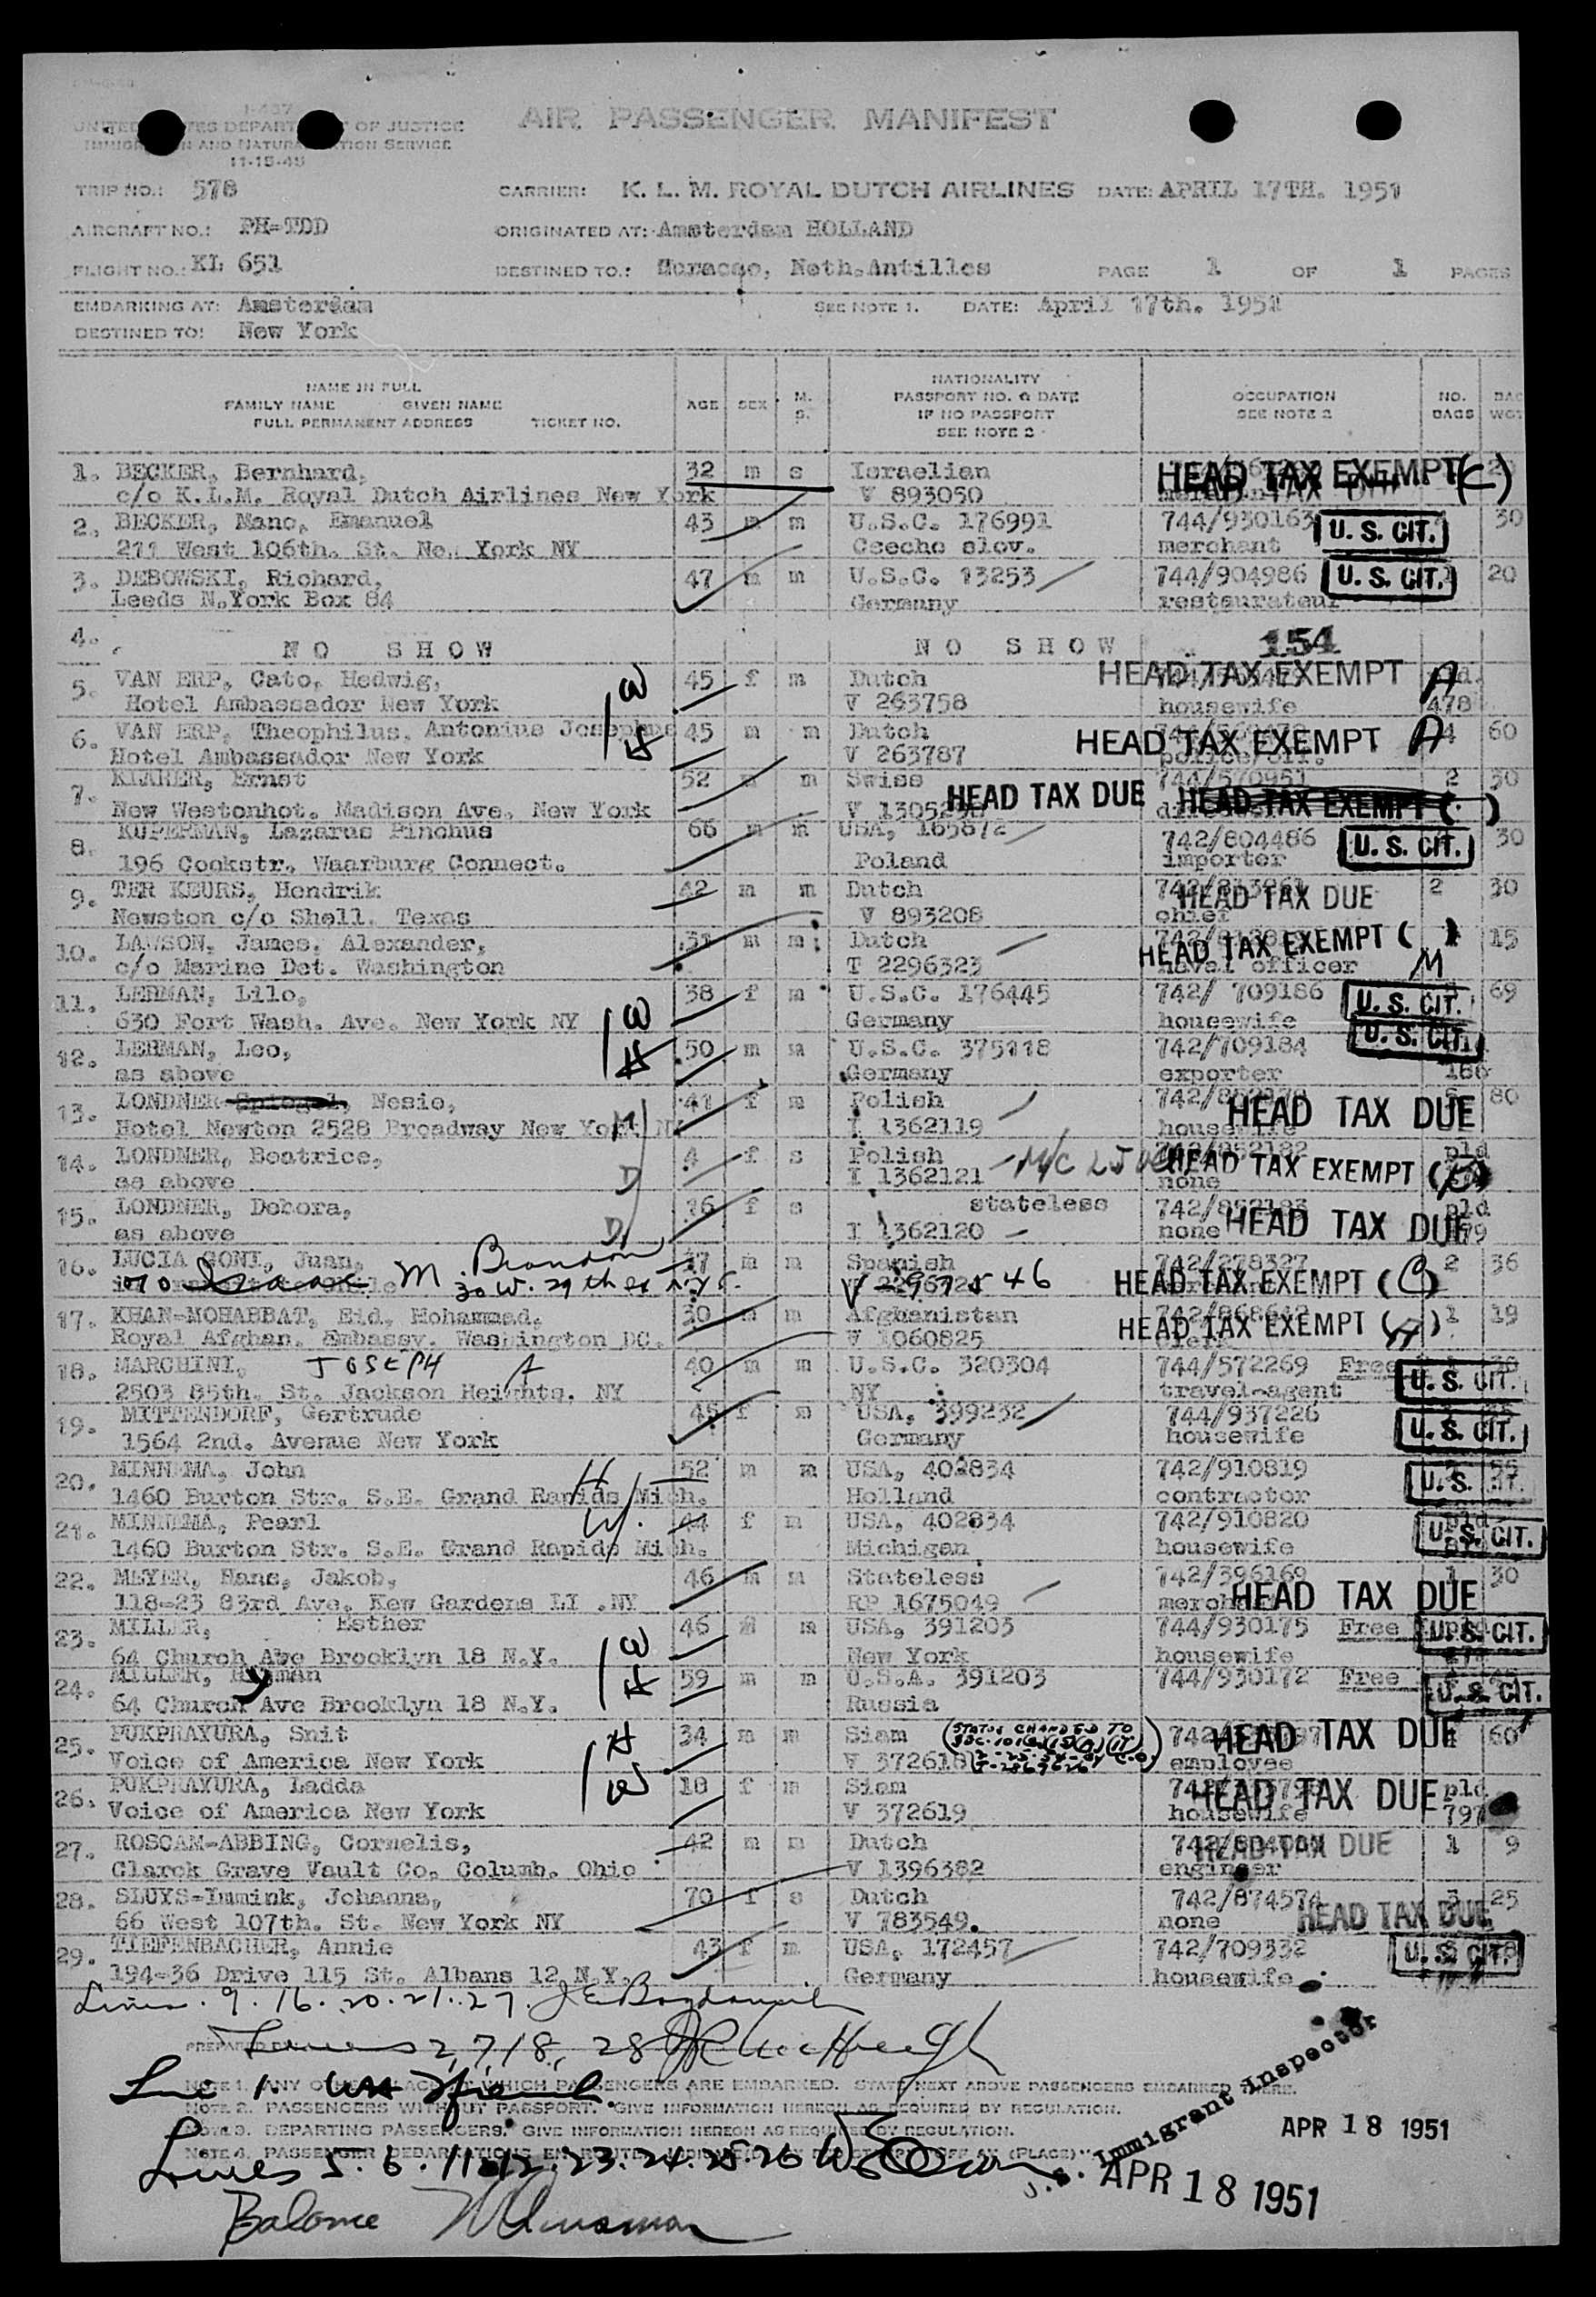 I-467
UNITED STATES DEPARTMENT OF JUSTICE
IMMIGRATION AND NATURALIZATION SERVICE
11-15-45
AIR PASSENGER MANIFEST
TRIP NO.: 578 CARRIER: K. L. M. ROYAL DUTCH AIRLINES DATE: APRIL 17TH. 1951
AIRCRAFT NO.: PH-TDD ORIGINATED AT: Amsterdam HOLLAND
FLIGHT NO.: KL 651 DESTINED TO.: Curacao, Neth.Antilles PAGE 1 OF 1 PAGES
EMBARKING AT: Amsterdam SEE NOTE 1. DATE: April 17th. 1951
DESTINED TO: New York
NAME IN FULL
FAMILY NAME GIVEN NAME
FULL PERMANENT ADDRESS TICKET NO.
AGE SEX M. S.
NATIONALITY
PASSPORT NO. & DATE
IF NO PASSPORT
SEE NOTE 2
OCCUPATION
SEE NOTE 2
NO. BAGS
BAG WGT
1. BECKER, Bernhard, 32 m s Israelian HEAD TAX EXEMPT (C)
c/o K.L.M. Royal Dutch Airlines New York V 893050
2. BECKER, Nano, Emanuel 43 m m U.S.C. 176991 744/930163 U. S. CIT. 30
211 West 106th. St. Ne. York NY Ceecho slov. merchant
3. DEBOWSKI, Richard, 47 m m U.S.C. 13253 744/904986 U. S. CIT. 1 20
Leeds N.York Box 84 Germany restaurateur
4. NO SHOW NO SHOW 154
5. VAN ERP, Cato, Hedwig, W 45 f m Dutch HEAD TAX EXEMPT A
Hotel Ambassador New York V 263758 housewife 478
6. VAN ERP, Theophilus, Antonius Josephus H 45 m m Dutch HEAD TAX EXEMPT A 4 60
Hotel Ambassador New York V 263787
7. KLAHER, Ernst 52 m m Swiss 744/570951 2 30
New Westonhot. Madison Ave, New York HEAD TAX DUE HEAD TAX EXEMPT ( )
8. KUPERMAN, Lazarus Pinchus 66 m m USA, 742/804486 U. S. CIT. 30
196 Cookstr, Waarburg Connect. Poland importer
9. TER KEURS, Hendrik 42 m m Dutch HEAD TAX DUE 2 30
Newston c/o Shell, Texas V 893208 chief
10. LAWSON, James, Alexander, 31 m m Dutch HEAD TAX EXEMPT ( ) 15
c/o Marine Det. Washington T 2296323 naval officer M
11. LEHMAN, Lilo, W 38 f m U.S.C. 176445 742/ 709186 U. S. CIT. 69
630 Fort Wash. Ave. New York NY Germany housewife
12. LEHMAN, Leo, H 50 m m U.S.C. 375118 742/709184 U. S. CIT.
as above Germany exporter 186
13. LONDNER Spiegel, Nesie, M 41 f m Polish HEAD TAX DUE 80
Hotel Newton 2528 Broadway New York NY I 1362119 housewife
14. LONDNER, Beatrice, D 4 f s Polish HEAD TAX EXEMPT pld
as above I 1362121 none
15. LONDNER, Debora, D 16 f s stateless 742/852183 pld
as above I 1362120 none HEAD TAX DUE 179
16. LUCIA GONI, Juan, M. Brandon m m Spanish 742/278327 2 36
30 W. 29th St N.Y.C. HEAD TAX EXEMPT (C)
17. KHAN-MOHABBAT, Eid, Mohammad, 30 m m Afghanistan 742/868642 1 19
Royal Afghan. Embassy. Washington DC. V 1060825 HEAD TAX EXEMPT clerk
18. MARCHINI, JOSEPH A 40 m m U.S.C. 320304 744/572269 Free U. S. CIT.
2503 85th. St. Jackson Heights, NY NY travel-agent
19. MITTENDORF, Gertrude 45 f m USA, 399232 744/937226 U. S. CIT.
1564 2nd. Avenue New York Germany housewife
20. MINNEMA, John H 52 m m USA, 402834 742/910819 U. S. CIT.
1460 Burton Str. S.E. Grand Rapids Mich. Holland contractor
21. MINNEMA, Pearl W. 44 f m USA, 402834 742/910820 U. S. CIT.
1460 Burton Str. S.E. Grand Rapids Mich. Michigan housewife
22. MEYER, Hans, Jakob, 46 m m Stateless 742/396169 1 30
118-23 83rd Ave. Kew Gardens LI .NY RP 1675049 HEAD TAX DUE
23. MILLER, Esther W 46 f m USA, 391203 744/930175 Free U. S. CIT.
64 Church Ave Brooklyn 18 N.Y. New York housewife
24. MILLER, Hyman H 59 m m U.S.A. 391203 744/930172 Free U. S. CIT.
64 Church Ave Brooklyn 18 N.Y. Russia
25. PUKPRAYURA, Snit H 34 m m Siam (STATUS CHANGED TO HEAD TAX DUE 60
Voice of America New York V 372618 employee
26. PUKPRAYURA, Ladda W 18 f m Siam HEAD TAX DUE pld
Voice of America New York V 372619 housewife 797
27. ROSCAM-ABBING, Cornelis, 42 m m Dutch HEAD TAX DUE 1 9
Clarck Grave Vault Co. Columb. Ohio V 1396382 engineer
28. SLUYS-Immink, Johanna, 70 f s Dutch 742/874574 3 25
66 West 107th. St. New York NY V 783549. none HEAD TAX DUE
29. TIEFENBACHER, Annie 43 f m USA, 172457 742/709332 U. S. CIT.
194-36 Drive 115 St. Albans 12 N.Y. Germany housewife
Lines. 9. 16. 20. 21. 27.
Lines 2, 7, 18, 28
PREPARED BY
Line 1.
NOTE 1. ANY OTHER PLACE AT WHICH PASSENGERS ARE EMBARKED. STATE NEXT ABOVE PASSENGERS EMBARKED THERE.
NOTE 2. PASSENGERS WITHOUT PASSPORT. GIVE INFORMATION HEREON AS REQUIRED BY REGULATION.
NOTE 3. DEPARTING PASSENGERS. GIVE INFORMATION HEREON AS REQUIRED BY REGULATION.
NOTE 4. PASSENGER DEPARTATIONS EN ROUTE (PLACE)"
Lines 5. 6. 11. 12. 23. 24. 25. 26
Balance
U.S. Immigrant Inspector
APR 18 1951
APR 18 1951